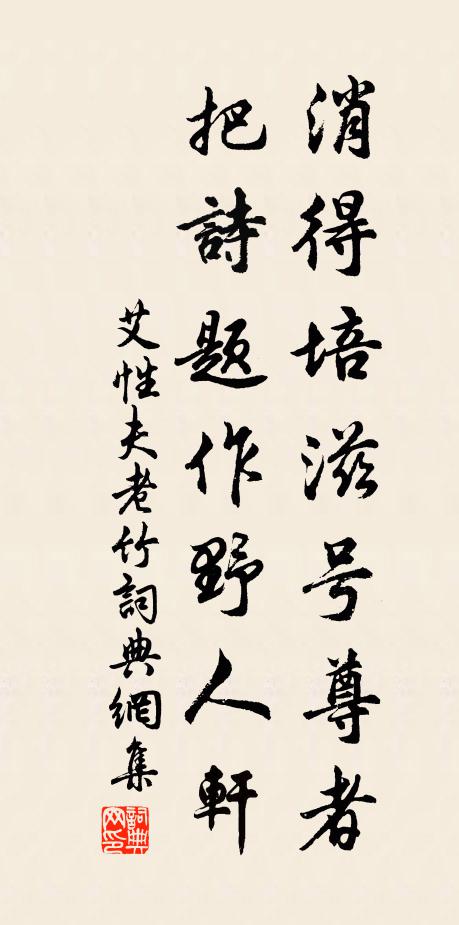 消得培滋号尊者
把詩題作野人軒
艾性夫老竹詞典網集
詞典网印